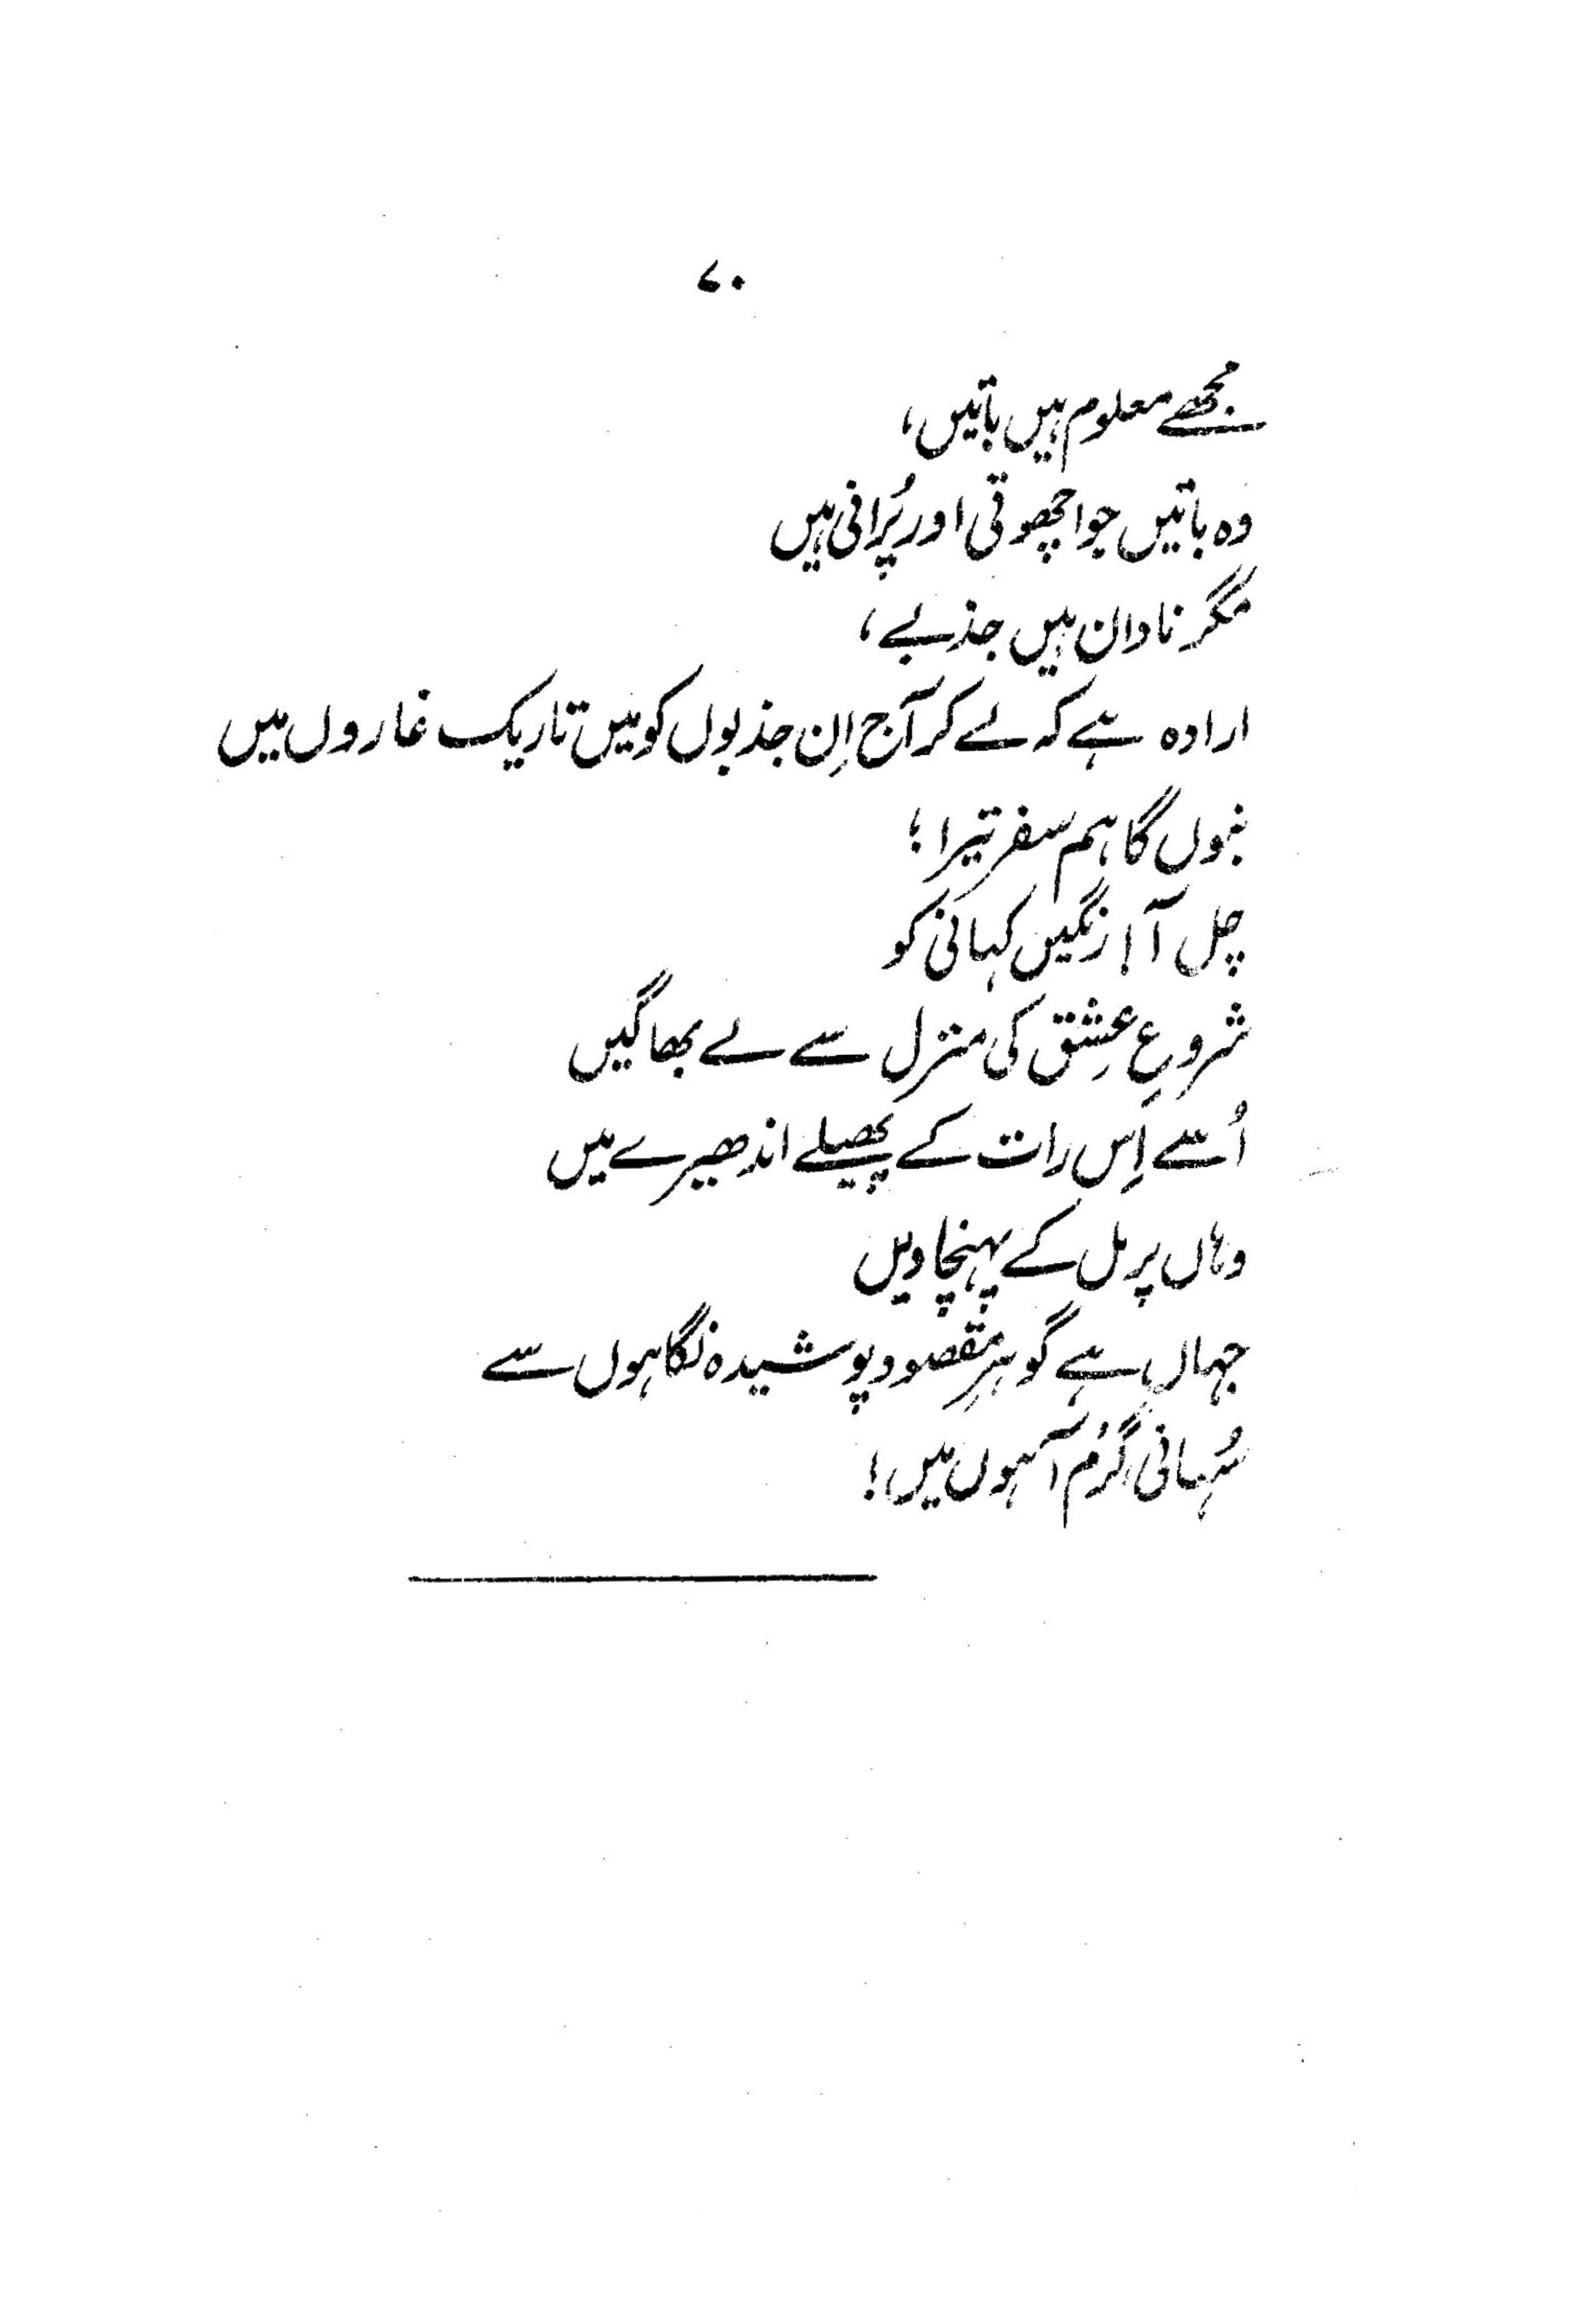 ۷۰
مجُھے معلوم ہیں باتیں،
وہ باتیں جو اچھوتی اور پُرانی ہیں
مگر نادان ہیں جذبے،
ارادہ ہے کہ لے کر آج اِن جذبوں کو میں تاریک غاروں میں
بنوں گا ہم سفر تیرا؛
چل آ! رنگیں کہانی کو
شروعِ عِشق کی منزل سے لے بھاگیں
اُسے اِس رات کے پھیلے اندھیرے میں
وہاں پر مل کے پہنچا دیں
جہاں ہے گوہرِ مقصود پوشیدہ نگاہوں سے
سُہانی، گرم آہوں میں!